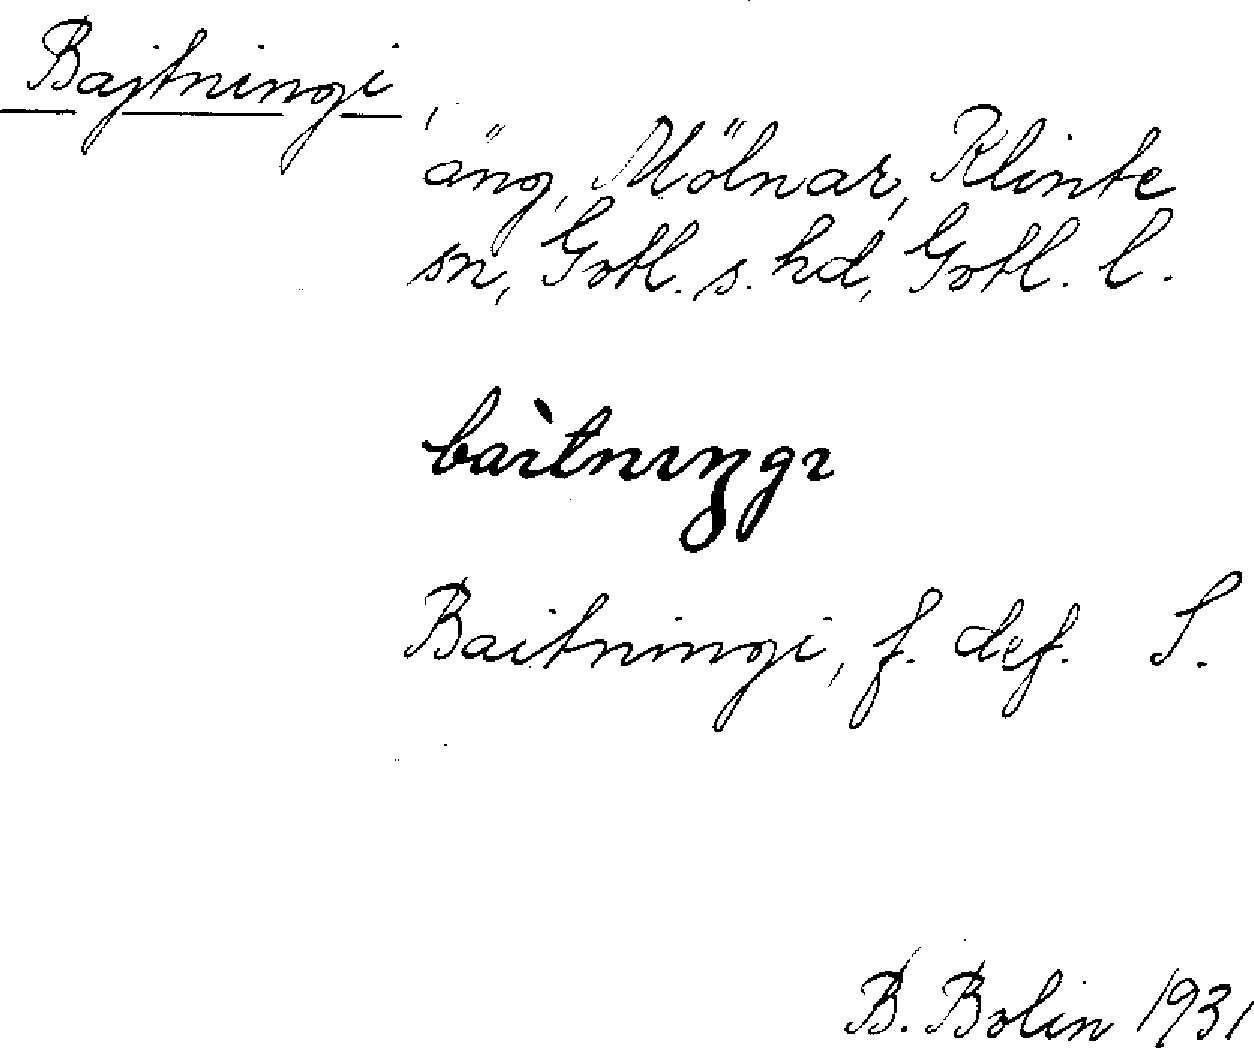 Bajtningi,
äng, Mölnar, Klinte
sn, Gotl. s. hd, Gotl. l.
bàıtnıŋgı
Baitningi, f. def. S.
B. Bolin 1931